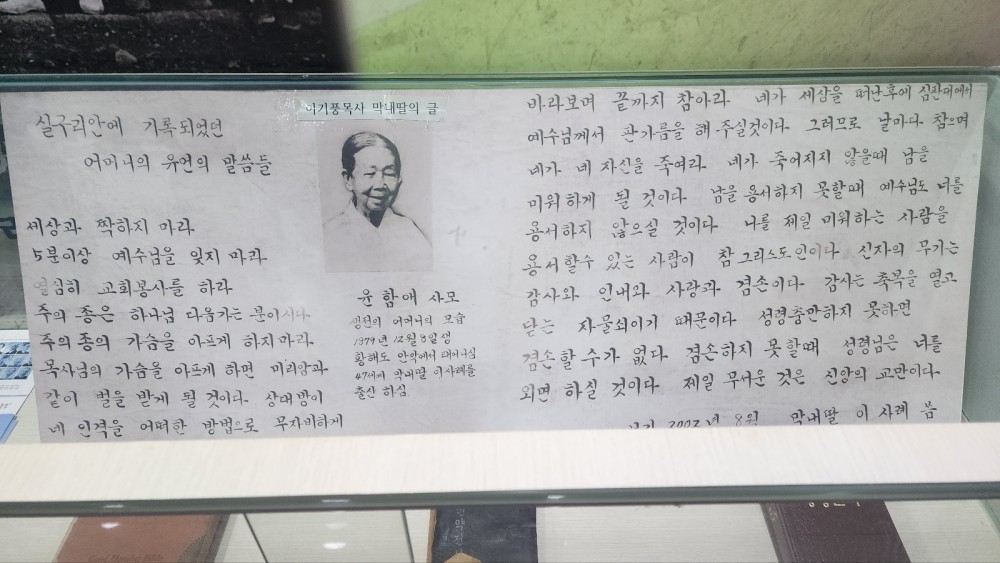 이기풍목사 막내딸의 글
실구리안에 기록되었던
어머니의 유언의 말씀들
세상과 짝하지 마라
5분이상 예수님을 잊지 마라
열심히 교회봉사를 하라
주의 종은 하나님 다음가는 분이시다
주의 종의 가슴을 아프게 하지마라
목사님의 가슴을 아프게 하면 미리암과
같이 벌을 받게 될 것이다 상대방이
네 인격을 어떠한 방법으로 무자비하게
윤함애 사모
생전의 어머니의 모습
1879년 12월 3일생
황해도 안악에서 태어나심
47세에 막내딸 이사례를
출산 하심
바라보며 끝까지 참아라 네가 세상을 떠난후에 심판대에서
예수님께서 판가름을 해 주실것이다 그러므로 날마다 참으며
네가 네 자신을 죽여라 네가 죽어지지 않을때 남을
미워하게 될 것이다 남을 용서하지 못할때 예수님도 너를
용서하지 않으실 것이다 나를 제일 미워하는 사람을
용서할수 있는 사람이 참 그리스도인이다 신자의 무기는
감사와 인내와 사랑과 겸손이다 감사는 축복을 열고
닫는 자물쇠이기 때문이다 성령충만하지 못하면
겸손할 수가 없다 겸손하지 못할때 성령님은 너를
외면 하실 것이다 제일 무서운 것은 신앙의 교만이다
2002년 8월 막내딸 이사례 씀